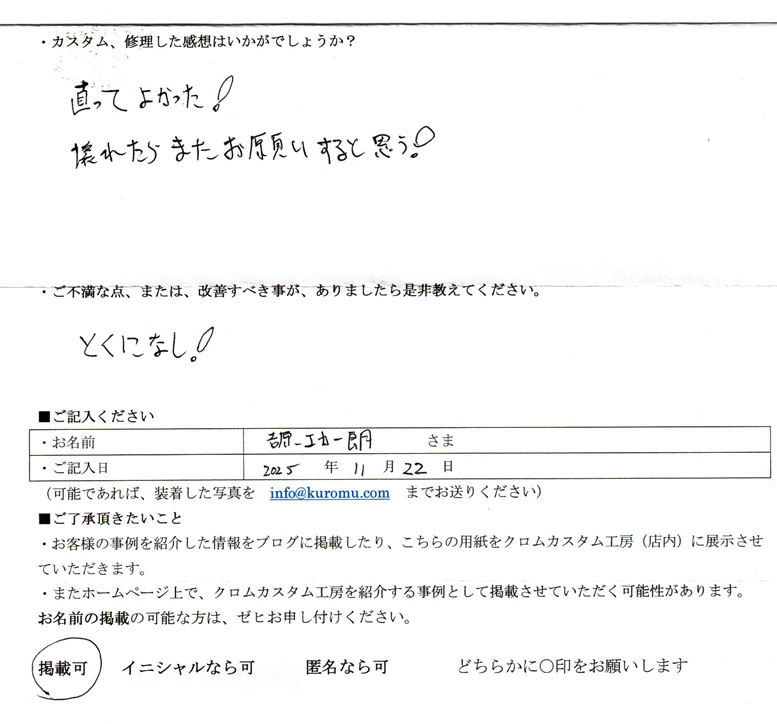 ・カスタム、修理した感想はいかがでしょうか？
直ってよかった！
壊れたらまたお願いすると思う！
・ご不満な点、または、改善すべき事が、ありましたら是非教えてください。
とくになし！
■ご記入ください
・お名前 さま
・ご記入日 2025 年 11 月 22 日
（可能であれば、装着した写真を info@kuromu.com までお送りください）
■ご了承頂きたいこと
・お客様の事例を紹介した情報をブログに掲載したり、こちらの用紙をクロムカスタム工房（店内）に展示させ
ていただきます。
・またホームページ上で、クロムカスタム工房を紹介する事例として掲載させていただく可能性があります。
お名前の掲載の可能な方は、ゼヒお申し付けください。
掲載可 イニシャルなら可 匿名なら可 どちらかに〇印をお願いします